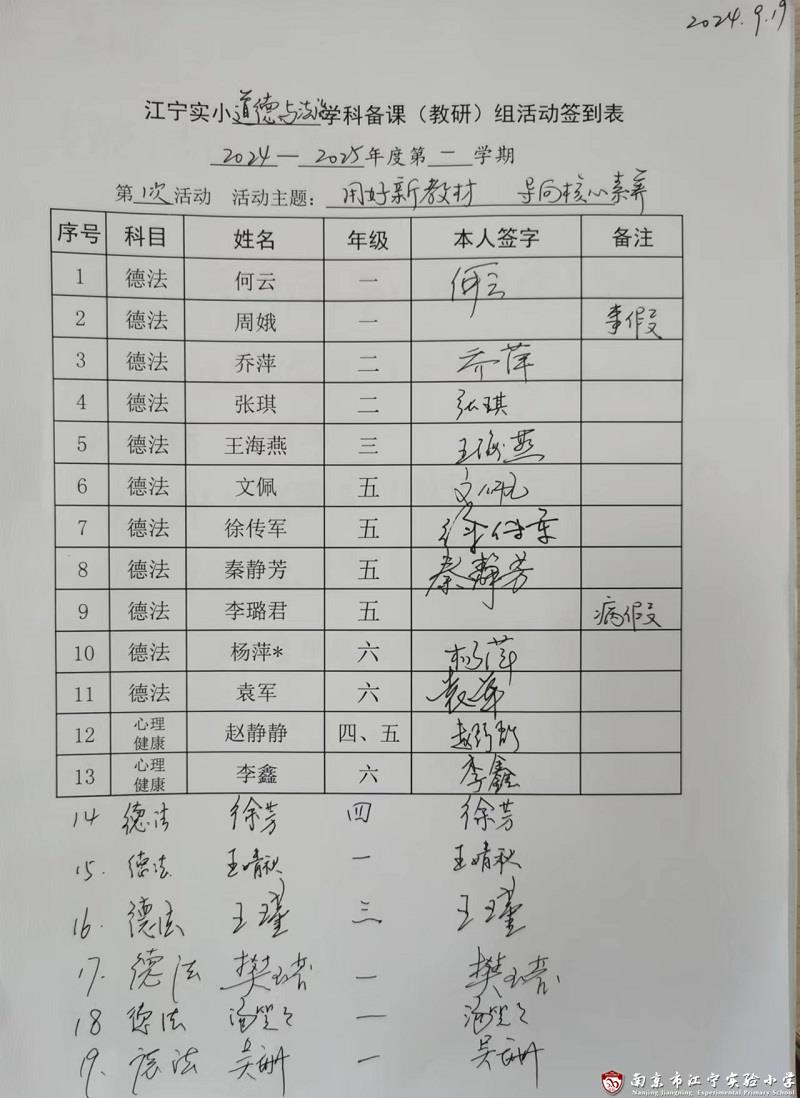 2024.9.19
江宁实小道德与法治学科备课（教研）组活动签到表
2024—2025年度第一学期
第1次活动 活动主题：用好新教材 导向核心素养
序号 科目 姓名 年级 本人签字 备注
1 德法 何云 一 何云
2 德法 周娥 一 事假
3 德法 乔萍 二 乔萍
4 德法 张琪 二 张琪
5 德法 王海燕 三 王海燕
6 德法 文佩 五 文佩
7 德法 徐传军 五 徐传军
8 德法 秦静芳 五 秦静芳
9 德法 李璐君 五 病假
10 德法 杨萍* 六 杨萍
11 德法 袁军 六 袁军
12 心理健康 赵静静 四、五 赵静静
13 心理健康 李鑫 六 李鑫
14 德法 徐芳 四 徐芳
15. 德法 王晴秋 一 王晴秋
16. 德法 王瑾 三 王瑾
17. 德法 樊 一 樊
18 德法 汤 一 汤
19. 德法 吴 一 吴
南京市江宁实验小学
Nanjing Jiangning Experimental Primary School